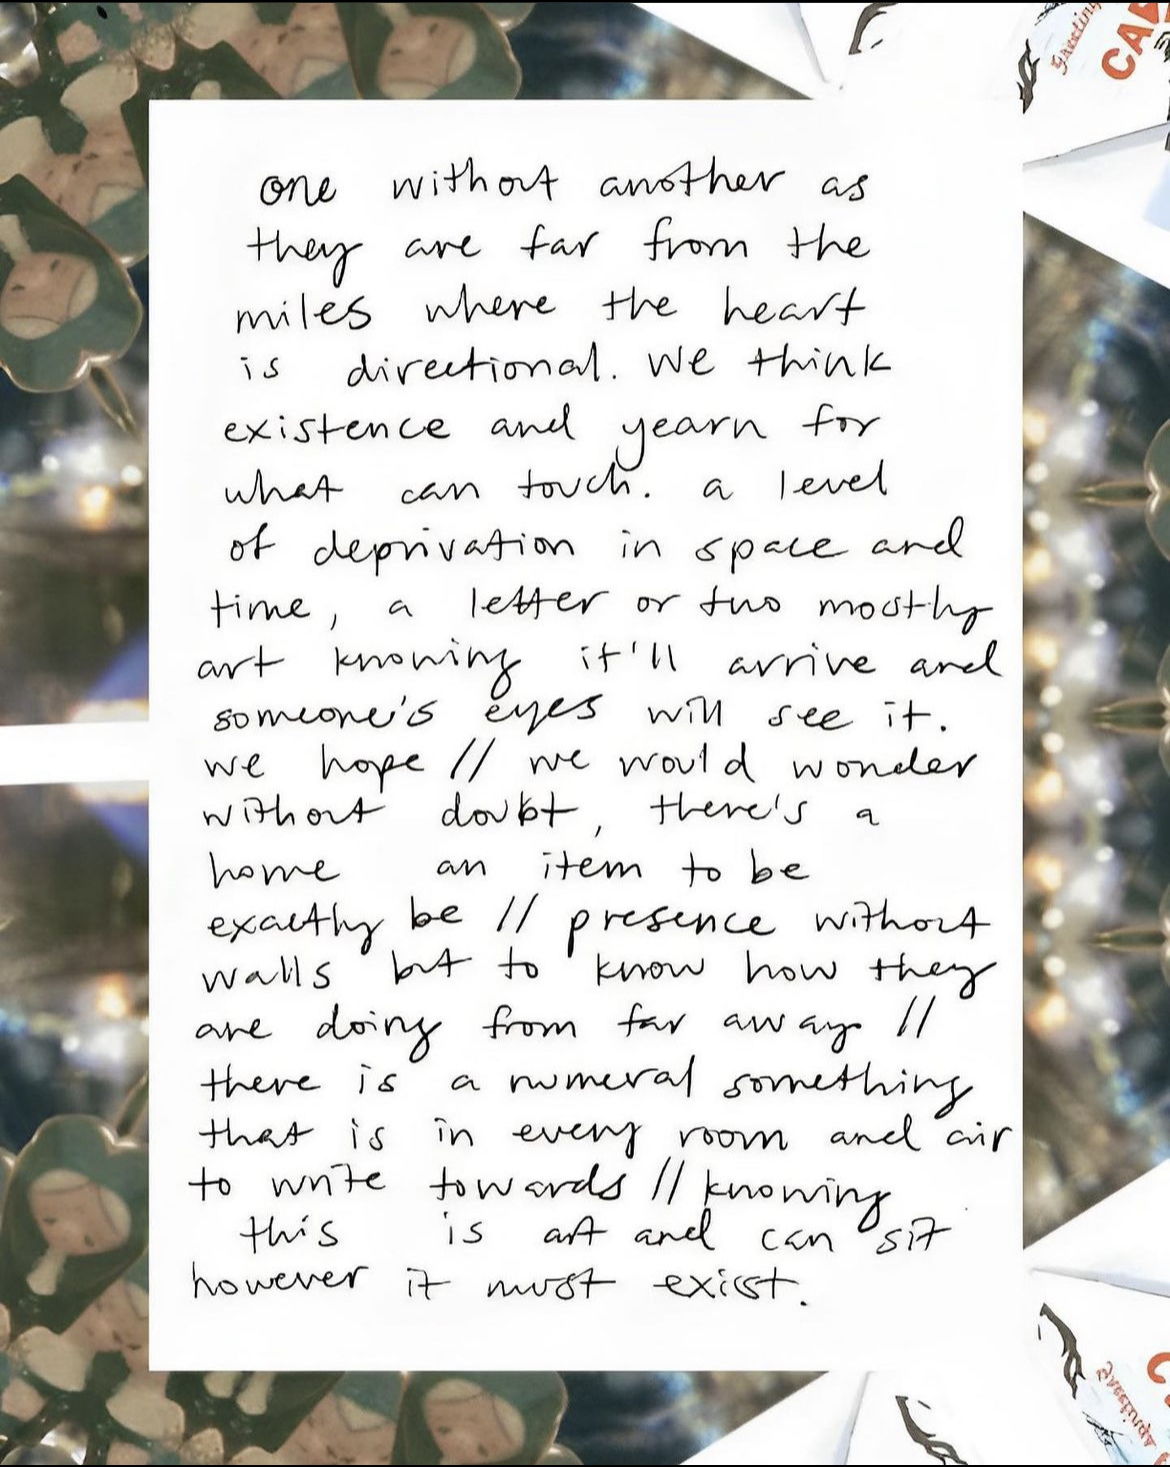 Greeting
CAL
one without another as
they are far from the
miles where the heart
is directional. We think
existence and yearn for
what can touch. a level
of deprivation in space and
time, a letter or two mostly
art knowing it'll arrive and
someone's eyes will see it.
we hope // we would wonder
without doubt, there's a
home an item to be
exactly be // presence without
walls but to know how they
are doing from far away //
there is a numeral something
that is in every room and air
to write towards // knowing
this is art and can sit
however it must exist.